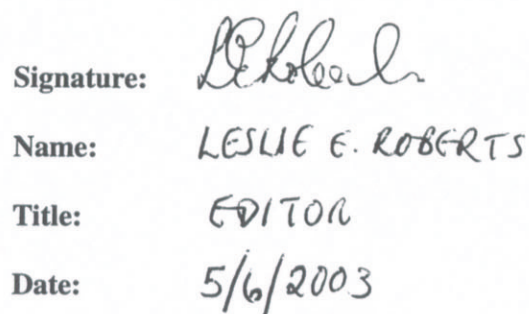 Signature: LERoberts
Name: LESLIE E. ROBERTS
Title: EDITOR
Date: 5/6/2003